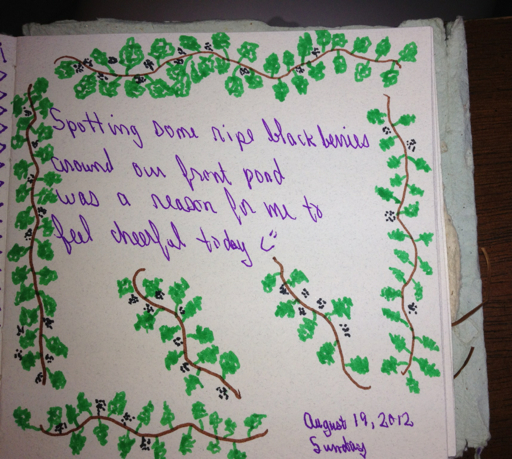 Spotting some ripe blackberries
around our front pond
was a reason for me to
feel cheerful today
August 19, 2012
Sunday